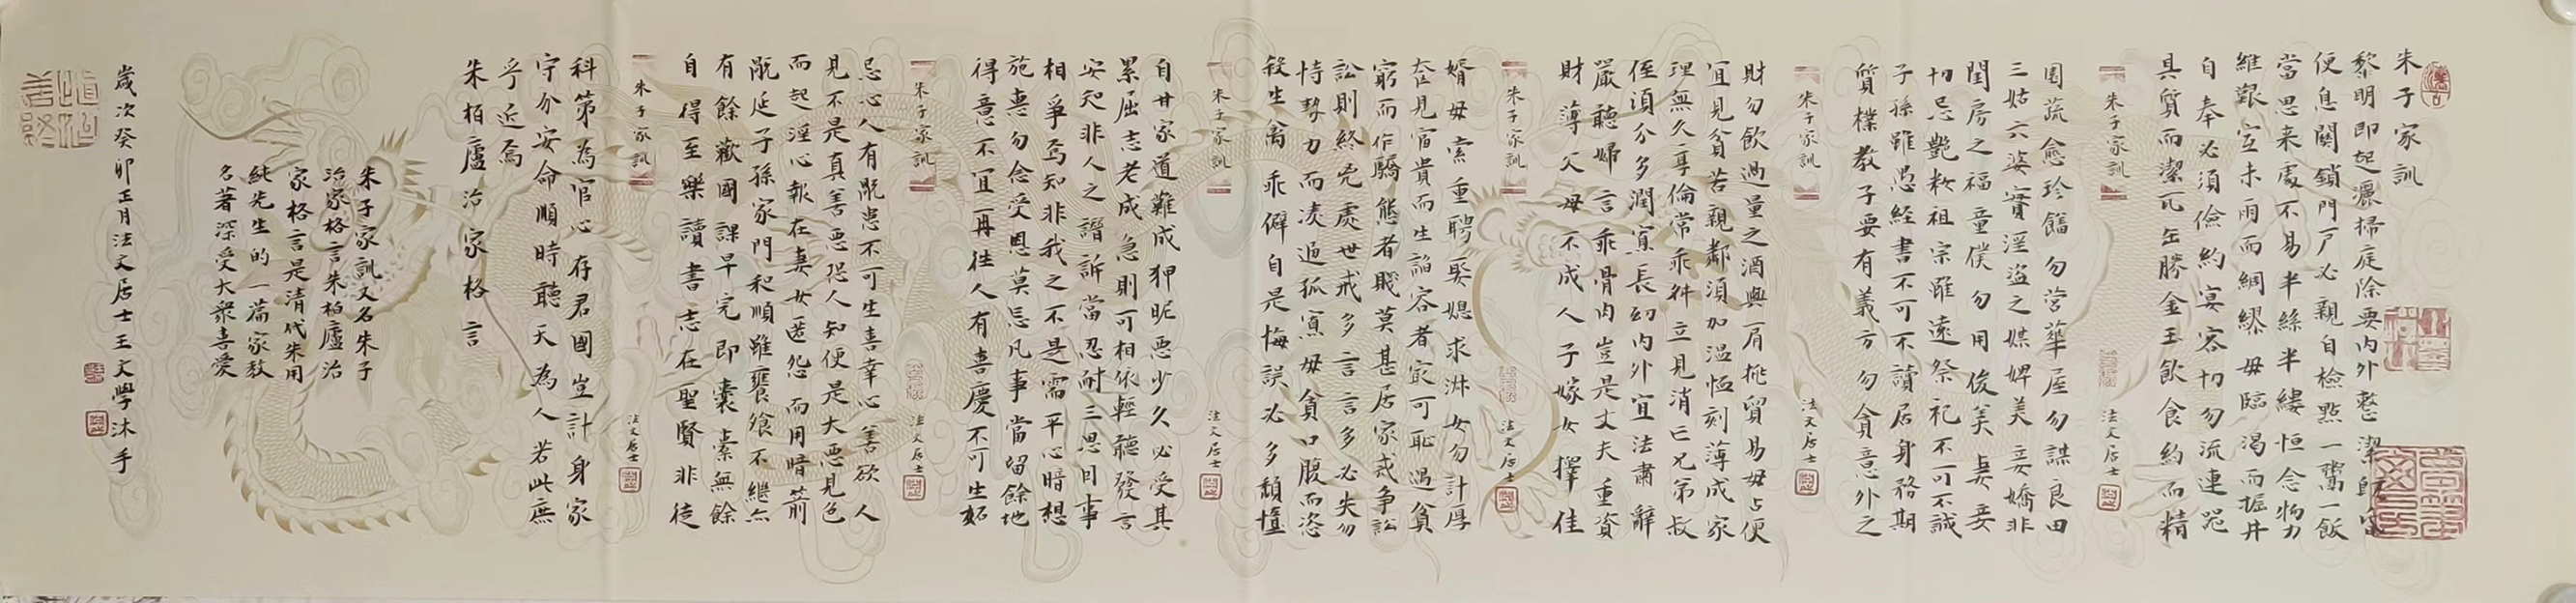 朱子家訓
黎明即起灑掃庭除要内外整潔既昏
便息關鎖門户必親自檢點一粥一飯
當思来處不易半絲半縷恒念物力
維艱宜未雨而綢繆毋臨渴而掘井
自奉必須儉約宴客切勿流連器
具質而潔瓦缶勝金玉飲食約而精
朱子家訓
法文居士
園蔬愈珍饈勿营華屋勿謀良田
三姑六婆實淫盗之媒婢美妾嬌非
閨房之福童僕勿用俊美妻妾
切忌艷妝祖宗雖遠祭祀不可不誠
子孫雖愚経書不可不讀居身務期
質樸教子要有義方勿貪意外之
朱子家訓
法文居士
財勿飲過量之酒與肩挑貿易毋占便
宜見貧苦親鄰須加温恤刻薄成家
理無久享倫常乖舛立見消亡兄弟叔
侄須分多潤寡長幼内外宜法肅辭
嚴聽婦言乖骨肉豈是丈夫重資
財薄父母不成人子嫁女擇佳
朱子家訓
法文居士
婿毋索重聘娶媳求淑女勿計厚
奩見富貴而生諂容者最可恥遇貧
窮而作驕態者賤莫甚居家戒争訟
訟則終凶處世戒多言言多必失勿
恃勢力而凌逼孤寡毋貪口腹而恣
殺生禽乖僻自是悔誤必多頹惰
朱子家訓
法文居士
自甘家道難成狎昵惡少久必受其
累屈志老成急則可相依輕聽發言
安知非人之譖訴當忍耐三思因事
相爭焉知非我之不是需平心暗想
施惠勿念受恩莫忘凡事當留餘地
得意不宜再往人有喜慶不可生妬
朱子家訓
法文居士
忌心人有禍患不可生喜幸心善欲人
見不是真善惡恐人知便是大惡見色
而起淫心報在妻女匿怨而用暗箭
禍延子孫家門和順雖饔飧不繼亦
有餘歡國課早完即囊橐無餘
自得至樂讀書志在聖賢非徒
朱子家訓
法文居士
科第為官心存君國豈計身家
守分安命順時聽天為人若此庶
乎近焉
朱柏廬治家格言
朱子家訓又名朱子
治家格言朱柏廬治
家格言是清代朱用
純先生的一篇家教
名著深受大眾喜愛
歲次癸卯正月法文居士王文學沐手